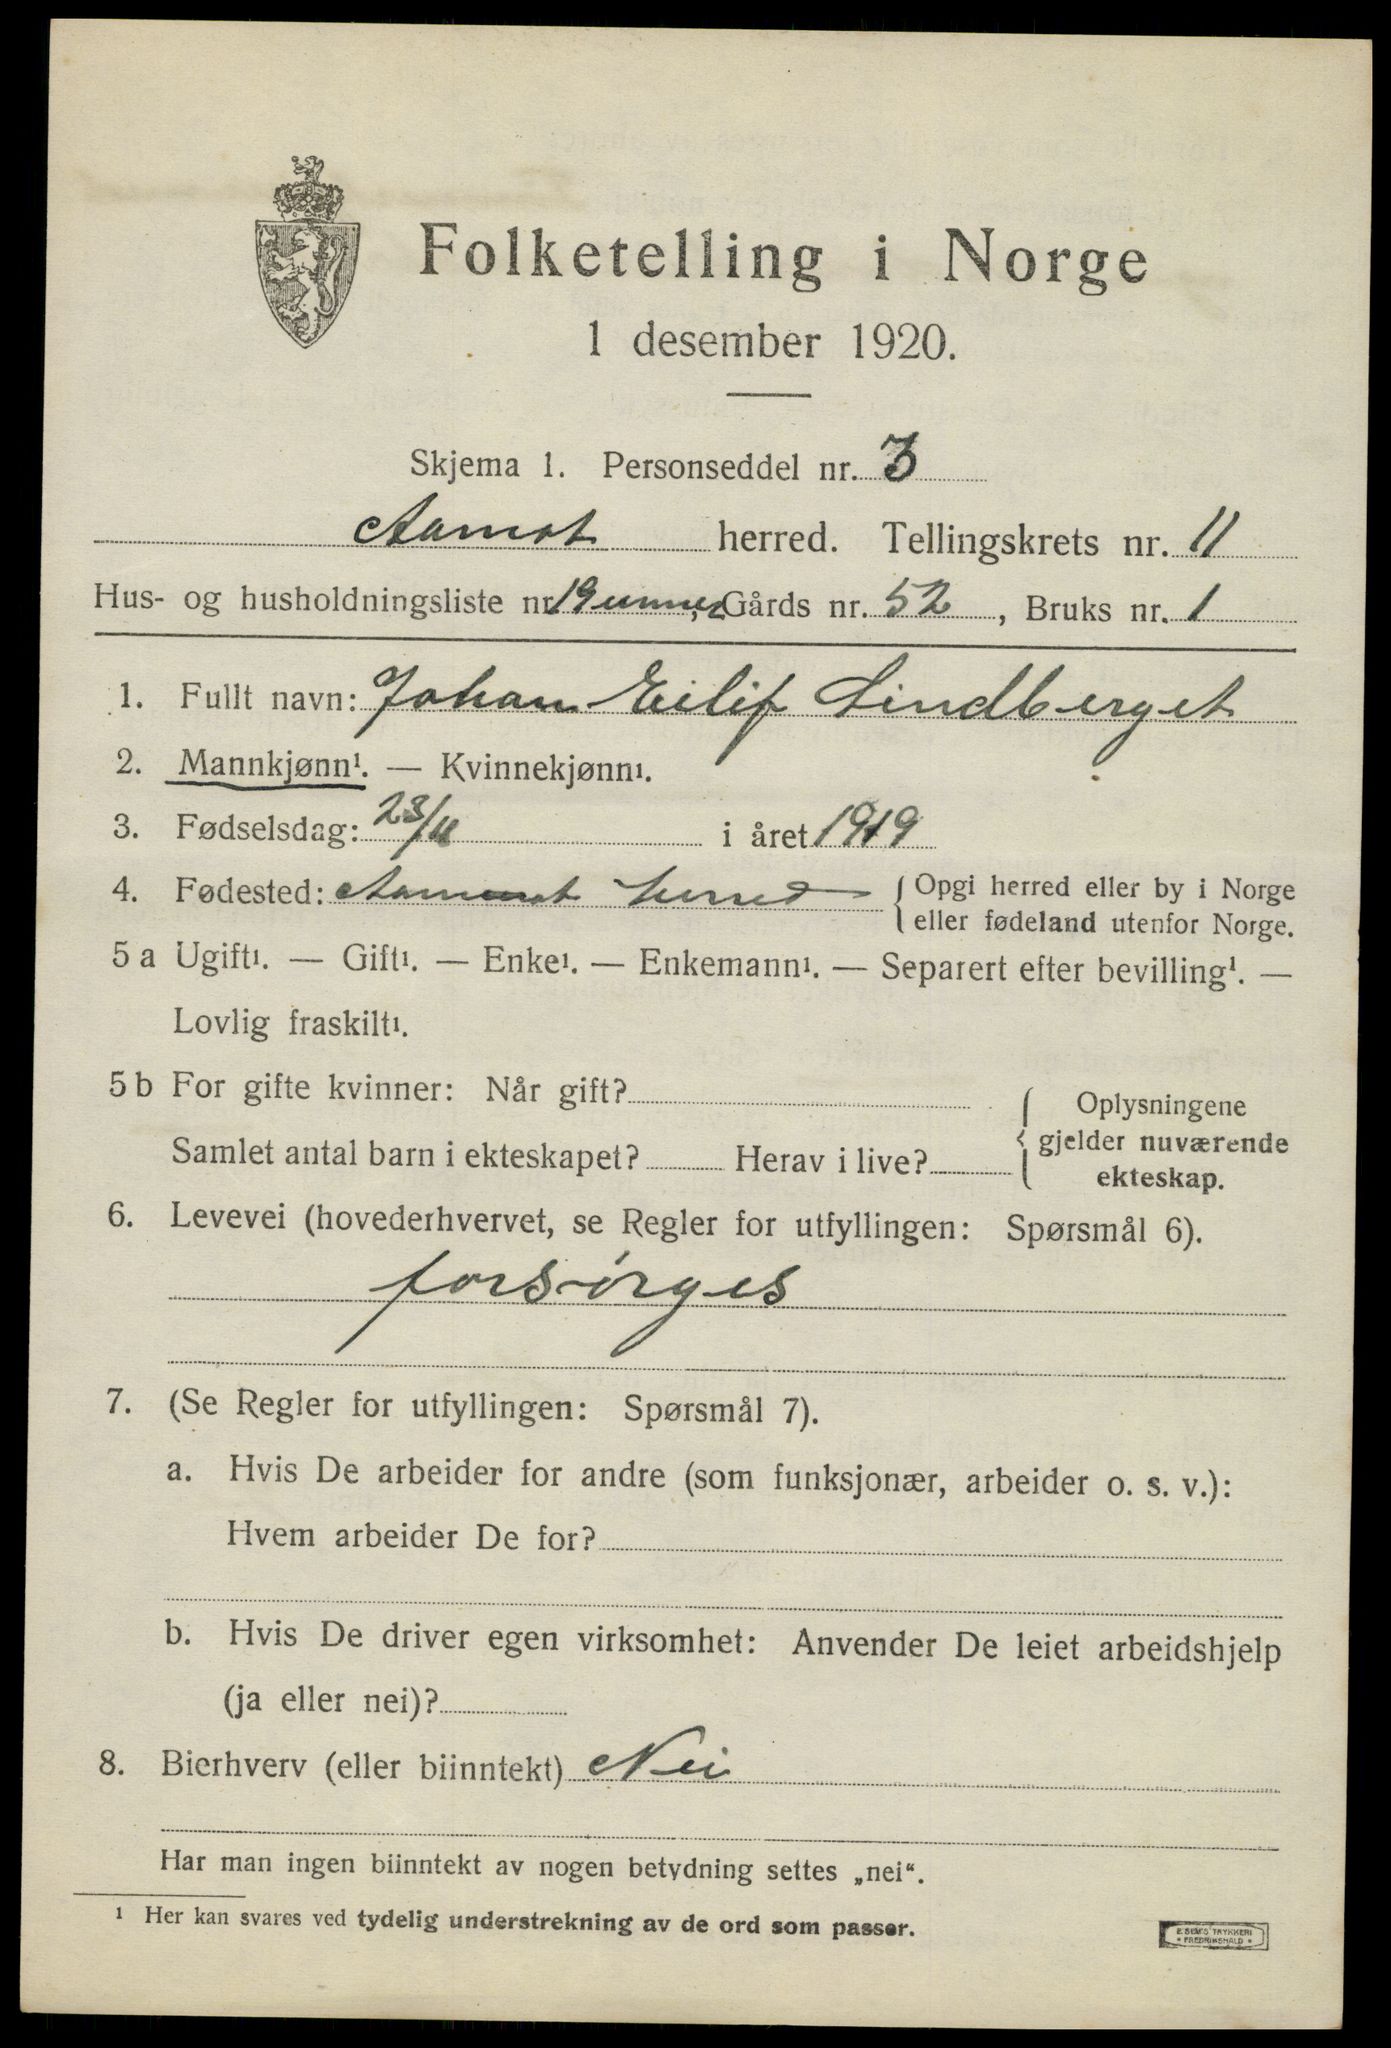 Folketelling i Norge
1 desember 1920.
Skjema 1. Personseddel nr. 3
Aamot herred. Tellingskrets nr. 11
Hus- og husholdningsliste nr. 19 , Gårds nr. 52 , Bruks nr. 1
1. Fullt navn: Johan Eilif Lindberget
2. Mannkjønn¹. — Kvinnekjønn¹.
3. Fødselsdag: 23/11 i året 1919
4. Fødested: Aamot herred { Opgi herred eller by i Norge
eller fødeland utenfor Norge.
5 a Ugift¹. — Gift¹. — Enke¹. — Enkemann¹. — Separert efter bevilling¹. —
Lovlig fraskilt¹.
5 b For gifte kvinner: Når gift?
Samlet antal barn i ekteskapet? Herav i live?
{ Oplysningene
gjelder nuværende
ekteskap.
6. Levevei (hovederhvervet, se Regler for utfyllingen: Spørsmål 6).
forsørges
7. (Se Regler for utfyllingen: Spørsmål 7).
a. Hvis De arbeider for andre (som funksjonær, arbeider o. s. v.):
Hvem arbeider De for?
b. Hvis De driver egen virksomhet: Anvender De leiet arbeidshjelp
(ja eller nei)?
8. Bierhverv (eller biinntekt) Nei
Har man ingen biinntekt av nogen betydning settes „nei“.
¹ Her kan svares ved tydelig understrekning av de ord som passer.
E. SEMS TRYKKERI
• FREDRIKSHALD •